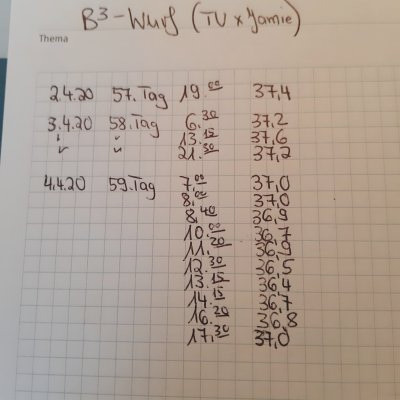 B³-Wurf (TU x Jamie)
Thema
2.4.20 57. Tag 19.00 37,4
3.4.20 58. Tag 6.30 37,2
" " 13.15 37,6
" " 21.30 37,2
4.4.20 59. Tag 7.00 37,0
8.00 37,0
8.40 36,9
10.00 36,7
11.20 36,9
12.30 36,5
13.15 36,4
14.15 36,7
16.20 36,8
17.30 37,0